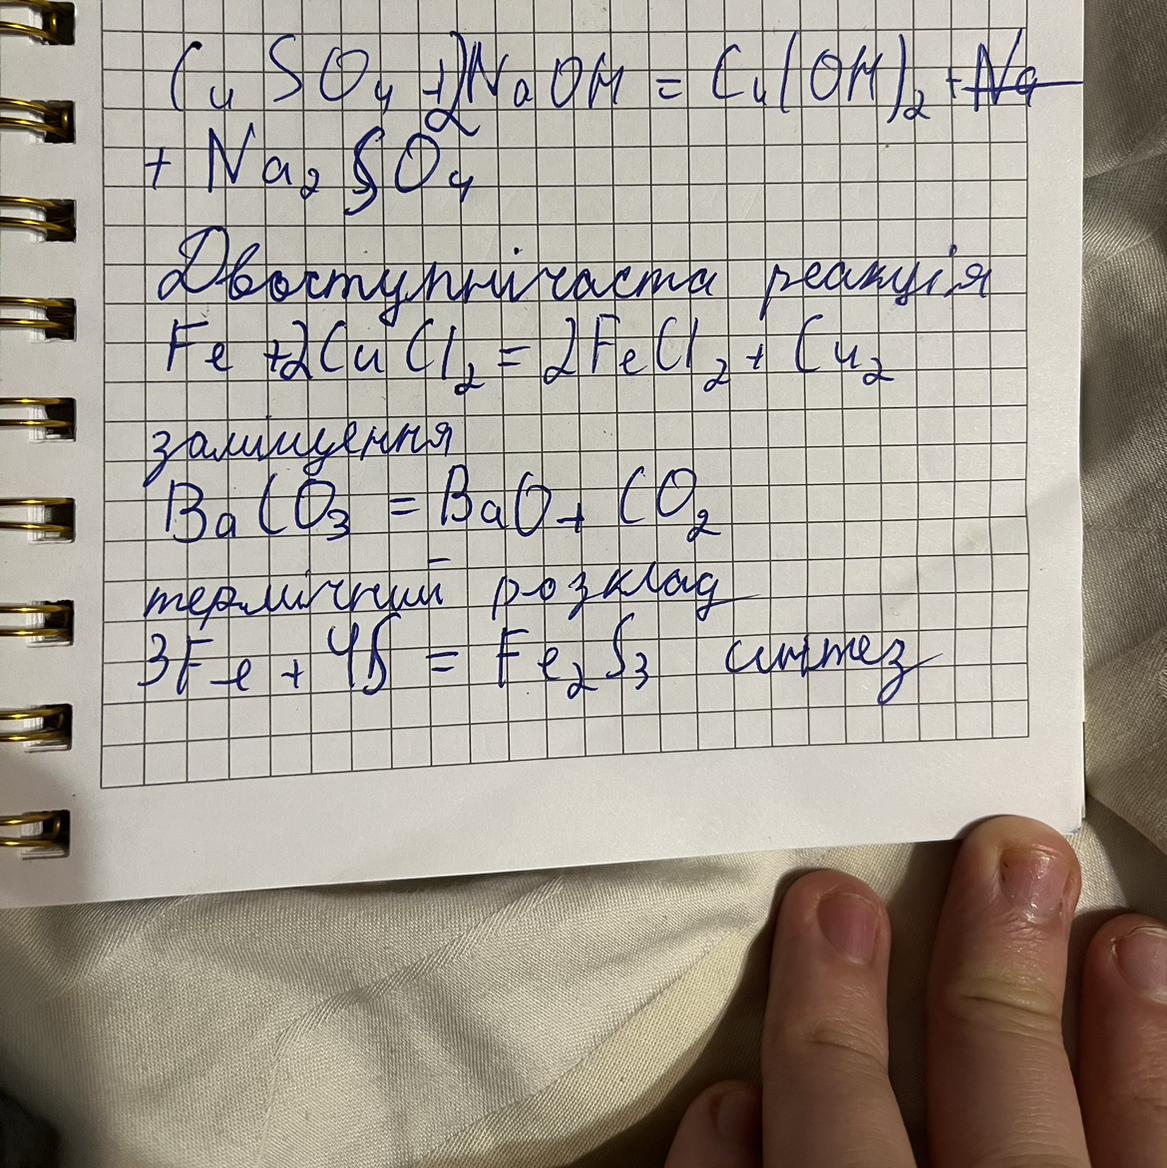 CuSO₄ + 2NaOH = Cu(OH)₂ + Na
+ Na₂SO₄
Двоступнічаста реакція
Fe + 2CuCl₂ = 2FeCl₂ + Cu₂
заміщення
BaCO₃ = BaO + CO₂
термічний розклад
3Fe + 4S = Fe₂S₃ синтез